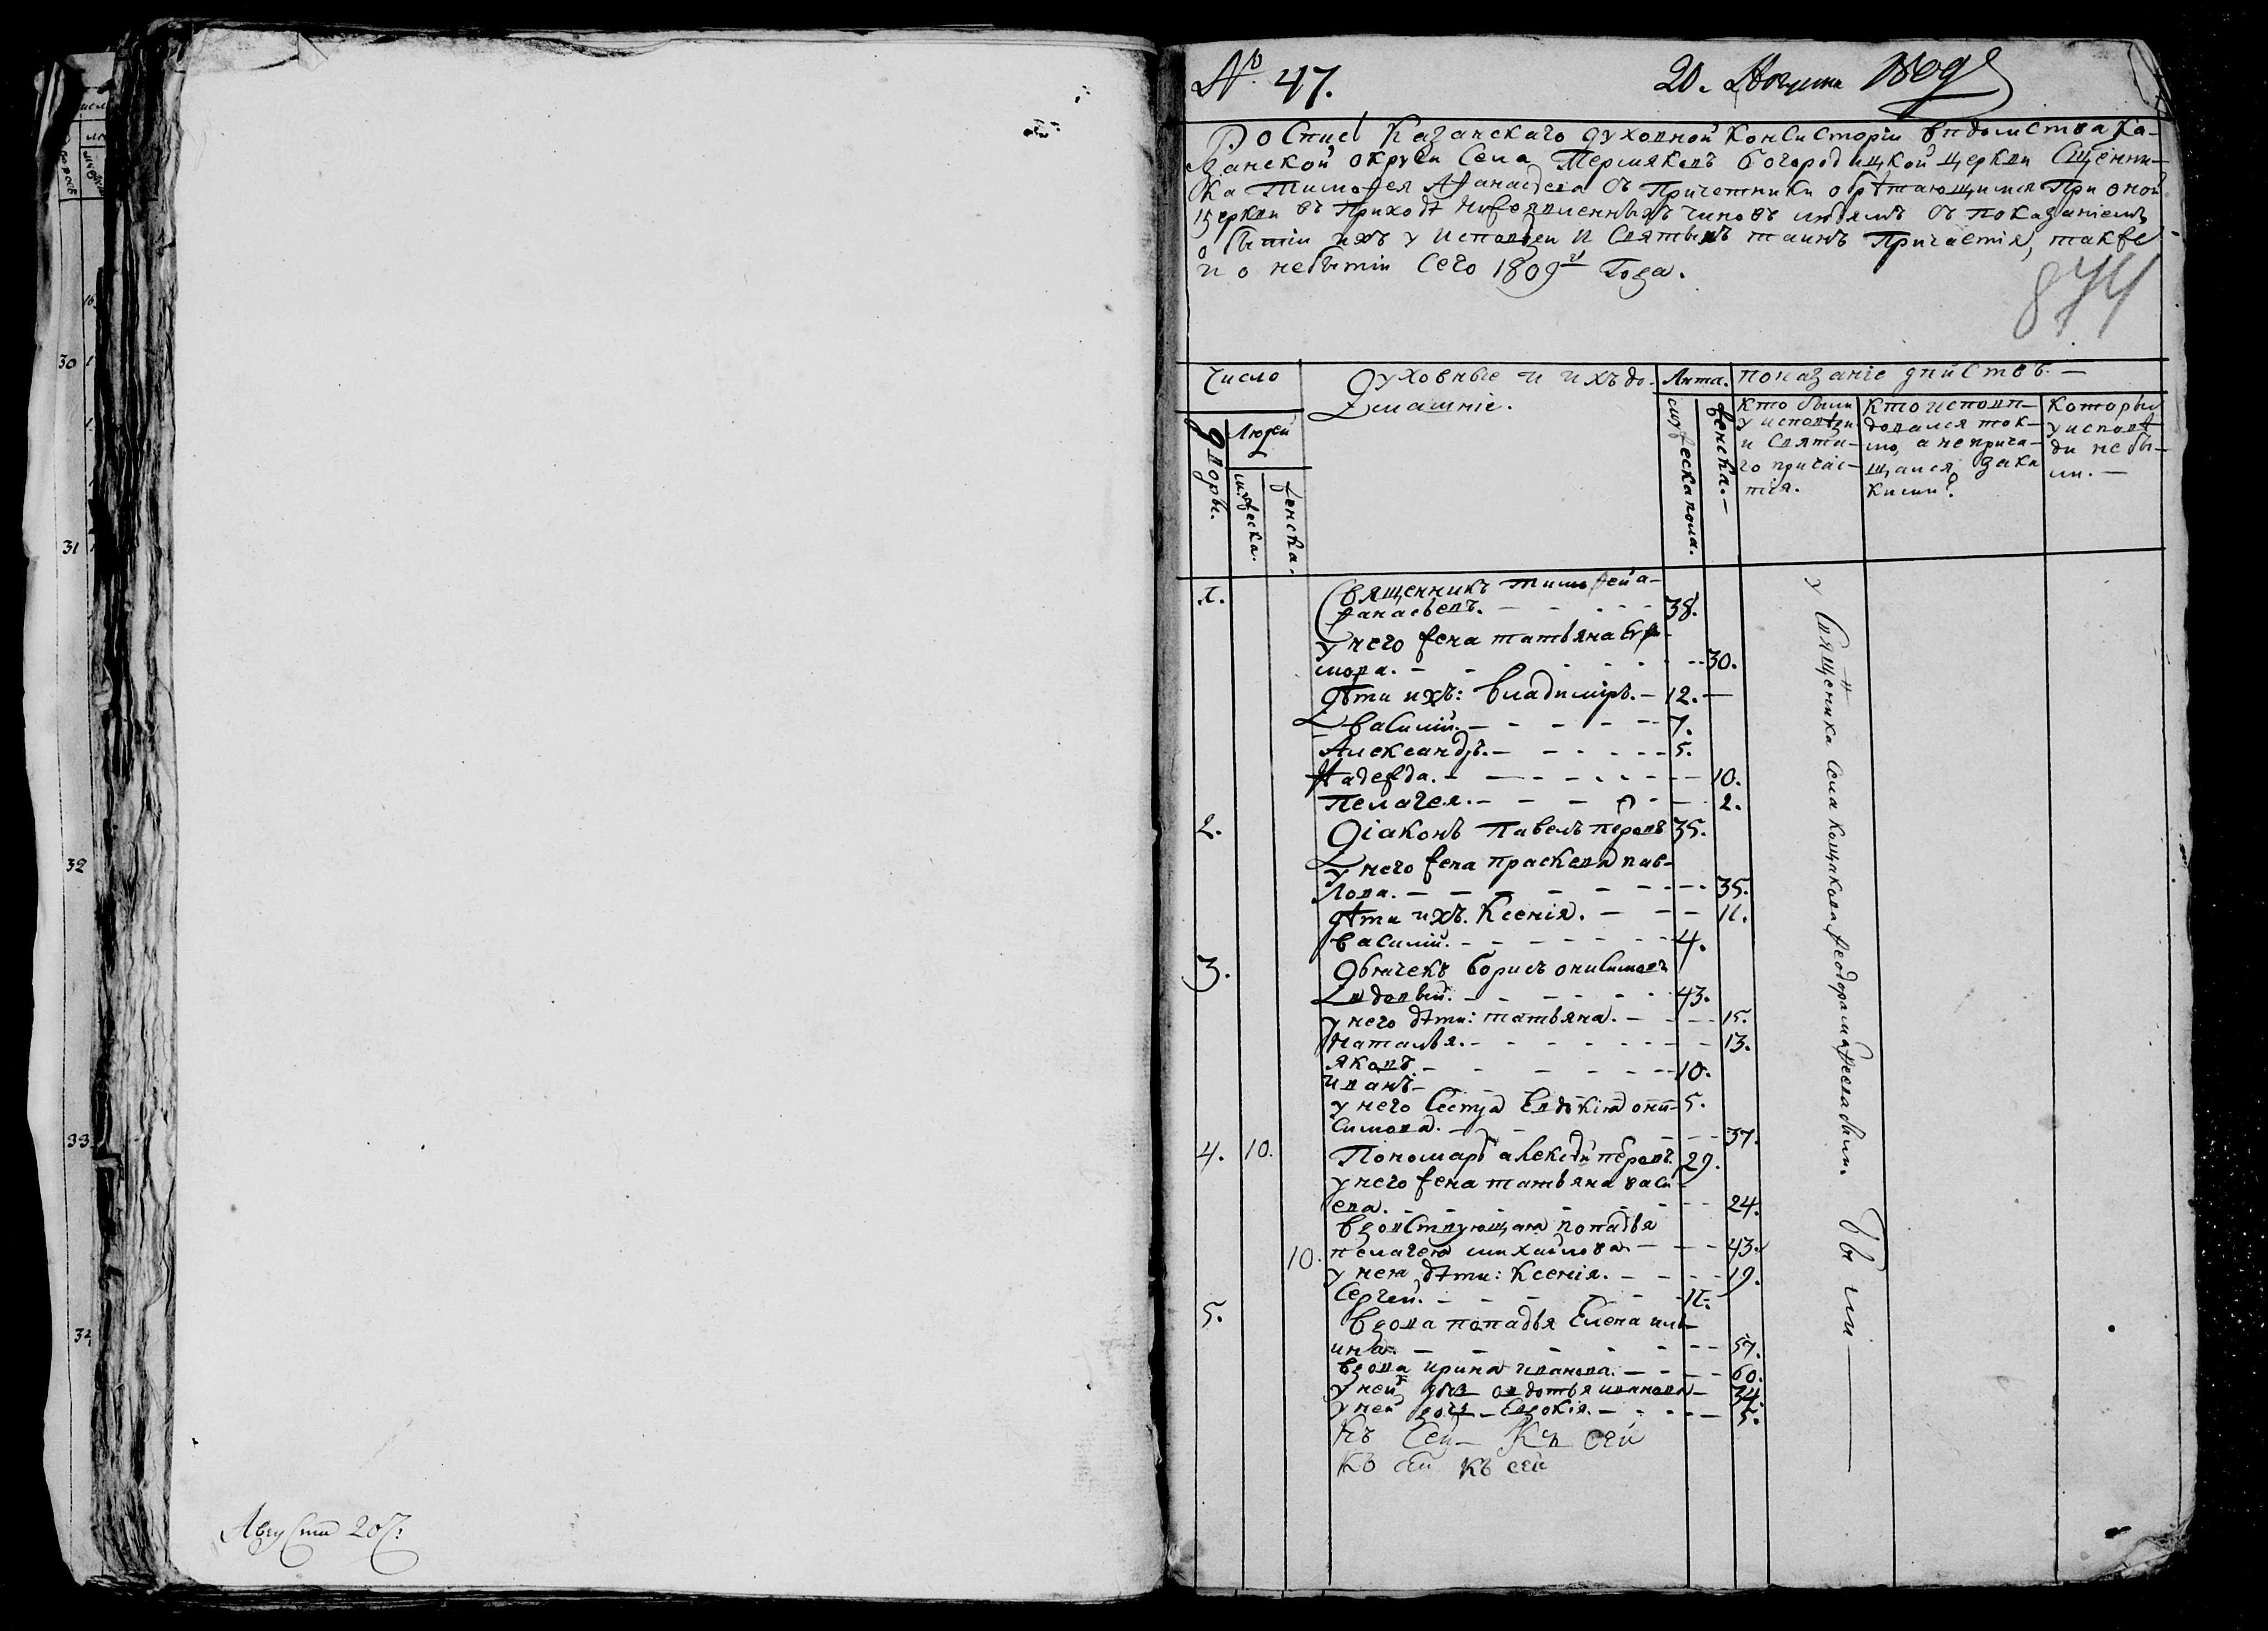 Августа 20
№ 47.
20. Августа 1809
Роспись Казанскаго духовной консисторіи вѣдомства Ка-
занской округи Села Пермяковъ Богородицкой церкви Сщенни-
ка Тимофея Афанасьева съ Причетники обрѣтающимися При оной
церкви въ Приходѣ нижеявленныхъ чиновъ людямъ съ показаніемъ
о бытіи ихъ у исповѣди и Святыхъ таинъ Причастія, также
и о небытіи Сего 1809 Года.
874
Число
Духовные и ихъ до-
машніе.
Лѣта.
показаніе дѣйствъ.
Дворы.
Людей
мужеска.
женска.
мужеска пола.
женска.
кто были
у исповѣди
и Святы-
го причас-
тія.
кто исповѣ-
довался ток-
мо, а не прича-
щался, за ка
кими?
которые
у исповѣ-
ди не бы-
ли.
1.
Священникъ Тимофей А-
фанасьевъ. 38.
у него жена татьяна
30.
дѣти ихъ: Владиміръ. 12.
Василій. 7.
Александръ. 5.
Надежда. 10.
Пелагея. 2.
2. Діаконъ Павелъ 35.
у него жена прасковья пав-
лова. 35.
дѣти ихъ. Ксенія. 11.
Василій. 4.
3. Дьячекъ Борисъ онисимовъ
вдовый. 43.
у него дѣти: татьяна. 15.
Наталья. 13.
яковъ. 10.
иванъ.
у него Сестра Евдокія они- 5.
симова. 37.
4. 10. Пономарь алексѣй 29.
у него жена татьяна васи-
ева. 24.
Вдовствующая попадья
10. пелагея михайлова. 43.
у нея дѣти: Ксенія. 19.
Сергей. 11.
5. Вдова попадья Елена иль-
ина. 57.
Вдова ирина иванова. 60.
у ней овдотья иванова 34.
у ней дочь Евдокія. 5.
Къ Сей Къ сей
Къ сей Къ сей
у Священника села Кощакова Феодора
Были